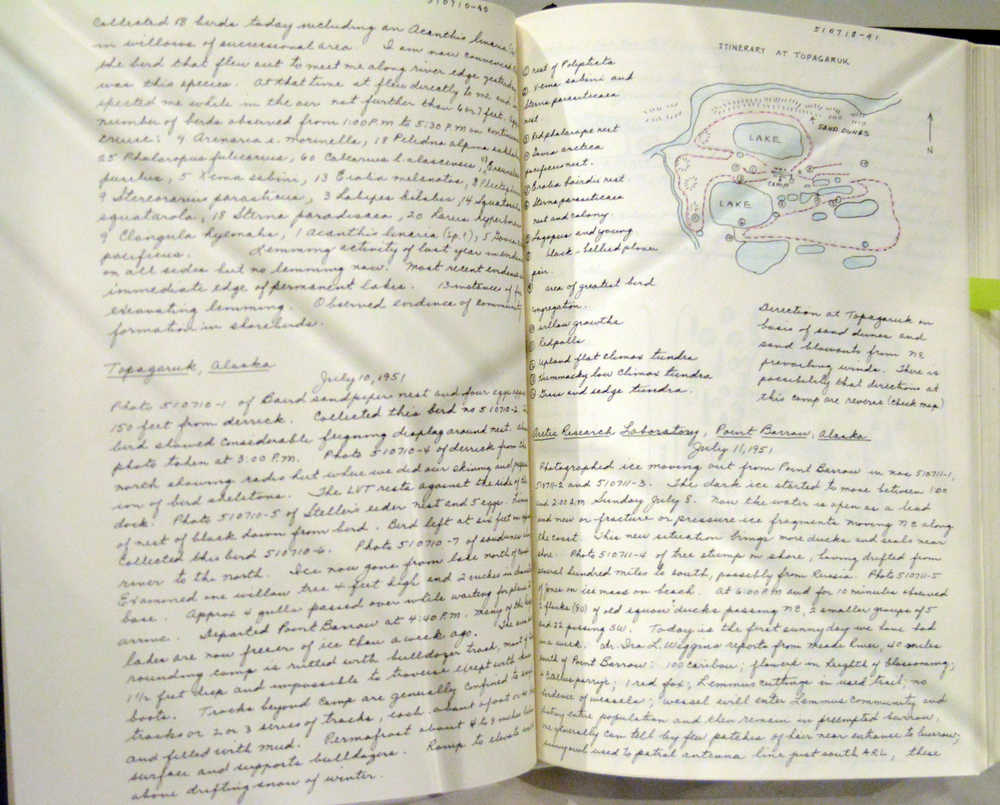 510710-40
Collected 18 birds today including an Acanthis linaria
in willows of successional area I am now convinced
the bird that flew out to meet me along river edge yesterday
was this species. At that time it flew directly to me and
spected me while in the air not further than 6 or 7 feet.
number of birds observed from 1:00 P.M to 5:30 P.M on continued
cruise: 4 Arenaria i. morinella, 18 Pelidna alpina
25 Phalaropus fulicarius, 60 Calcarius l. alascensis,
pusillus, 5 Xema sabini, 13 Erolia melanotas, 3
9 Stercorarius parasiticus, 3 Lobipes lobatus, 14 Squatarola
squatarola, 18 Sterna paradisaea, 20 Larus hyperboreus
9 Clangula hyemalis, 1 Acanthis linaria (sp.?), 5 Gavia
pacificus. Lemming activity of last year in evidence
on all sides but no lemming now. Most recent evidence
immediate edge of permanent lakes. 13 instances of fox
excavating lemming. Observed evidence of community
formation in shorebirds.
Topagaruk, Alaska
July 10, 1951
Photo 510710-1 of Baird sandpiper nest and four eggs
150 feet from derrick. Collected this bird no 510710-2.
bird showed considerable feigning display around nest.
photo taken at 3:00 P.M. Photo 510710-4 of derrick from the
north showing radio hut where we did our skinning and
ion of bird skeletons. The LVT rests against the side of the
dock. Photo 510710-5 of Steller's eider nest and 5 eggs.
of nest of black down from bird. Bird left at six feet
Collected this bird 510710-6. Photo 510710-7 of
river to the north. Ice now gone from lake north of camp
Examined one willow tree 4 feet high and 2 inches in
base. Approx 4 gulls passed over while waiting for plane to
arrive. Departed Point Barrow at 4:40 P.M. Many of the
lakes are now freeer of ice than a week ago. The
rounding camp is rutted with bulldozer tracks, most of
1 1/2 feet deep and impossible to traverse except with
boots. Tracks beyond camp are generally confined to
tracks or 2 or 3 series of tracks, each about a foot or
and filled with mud. Permafrost about 4 to 8 inches below
surface and supports bulldozers. Ramp to elevate
above drifting snow of winter.
510710-41
ITINERARY AT TOPAGARUK
① nest of Polysticta
② Xema sabini and
Sterna paradisaea
nest
③ Red phalarope nest
④ Gavia arctica
pacificus nest.
⑤ Erolia bairdii nest
⑥ Sterna paradisaea
nest and colony.
⑦ Lagopus and young
⑧ black-bellied plover
pair.
area of greatest bird
congregation.
willow growths
redpolls
Upland flat climax tundra
Hummocky low climax tundra
Grass and sedge tundra.
LAKE
SAND DUNES
CAMP
LAKE
N
Direction at Topagaruk on
basis of sand dunes and
sand blowouts from NE
prevailing winds. There is
possibility that directions at
this camp are reverse (check map)
Arctic Research Laboratory, Point Barrow, Alaska
July 11, 1951
Photographed ice moving out from Point Barrow in nos 510711-1,
510711-2 and 510711-3. The dark ice started to move between 1:00
and 2:00 A.M Sunday July 8. Now the water is open as a lead
and new or fracture or pressure-ice fragments moving NE along
the coast. This new situation brings more ducks and seals near
shore. Photo 510711-4 of tree stump on shore, having drifted from
several hundred miles to south, possibly from Russia. Photo 510711-5
of Jones on ice mass on beach. At 6:00 P.M and for 10 minutes observed
2 flocks (80) of old squaw ducks passing NE, 2 smaller groups of 5
and 22 passing SW. Today is the first sunny day we have had
in a week. Dr. Ira L. Wiggins reports from Meade River, 40 miles
south of Point Barrow: 100 caribou; flowers in height of blossoming;
Citellus parryi; 1 red fox; Lemmus cuttings in used trail; no
evidence of weasels; weasel will enter Lemmus community and
destroy entire population and then remain in preempted burrow.
one generally can tell by few patches of hair near entrance to burrow;
used to patrol antenna line just south ARL, these